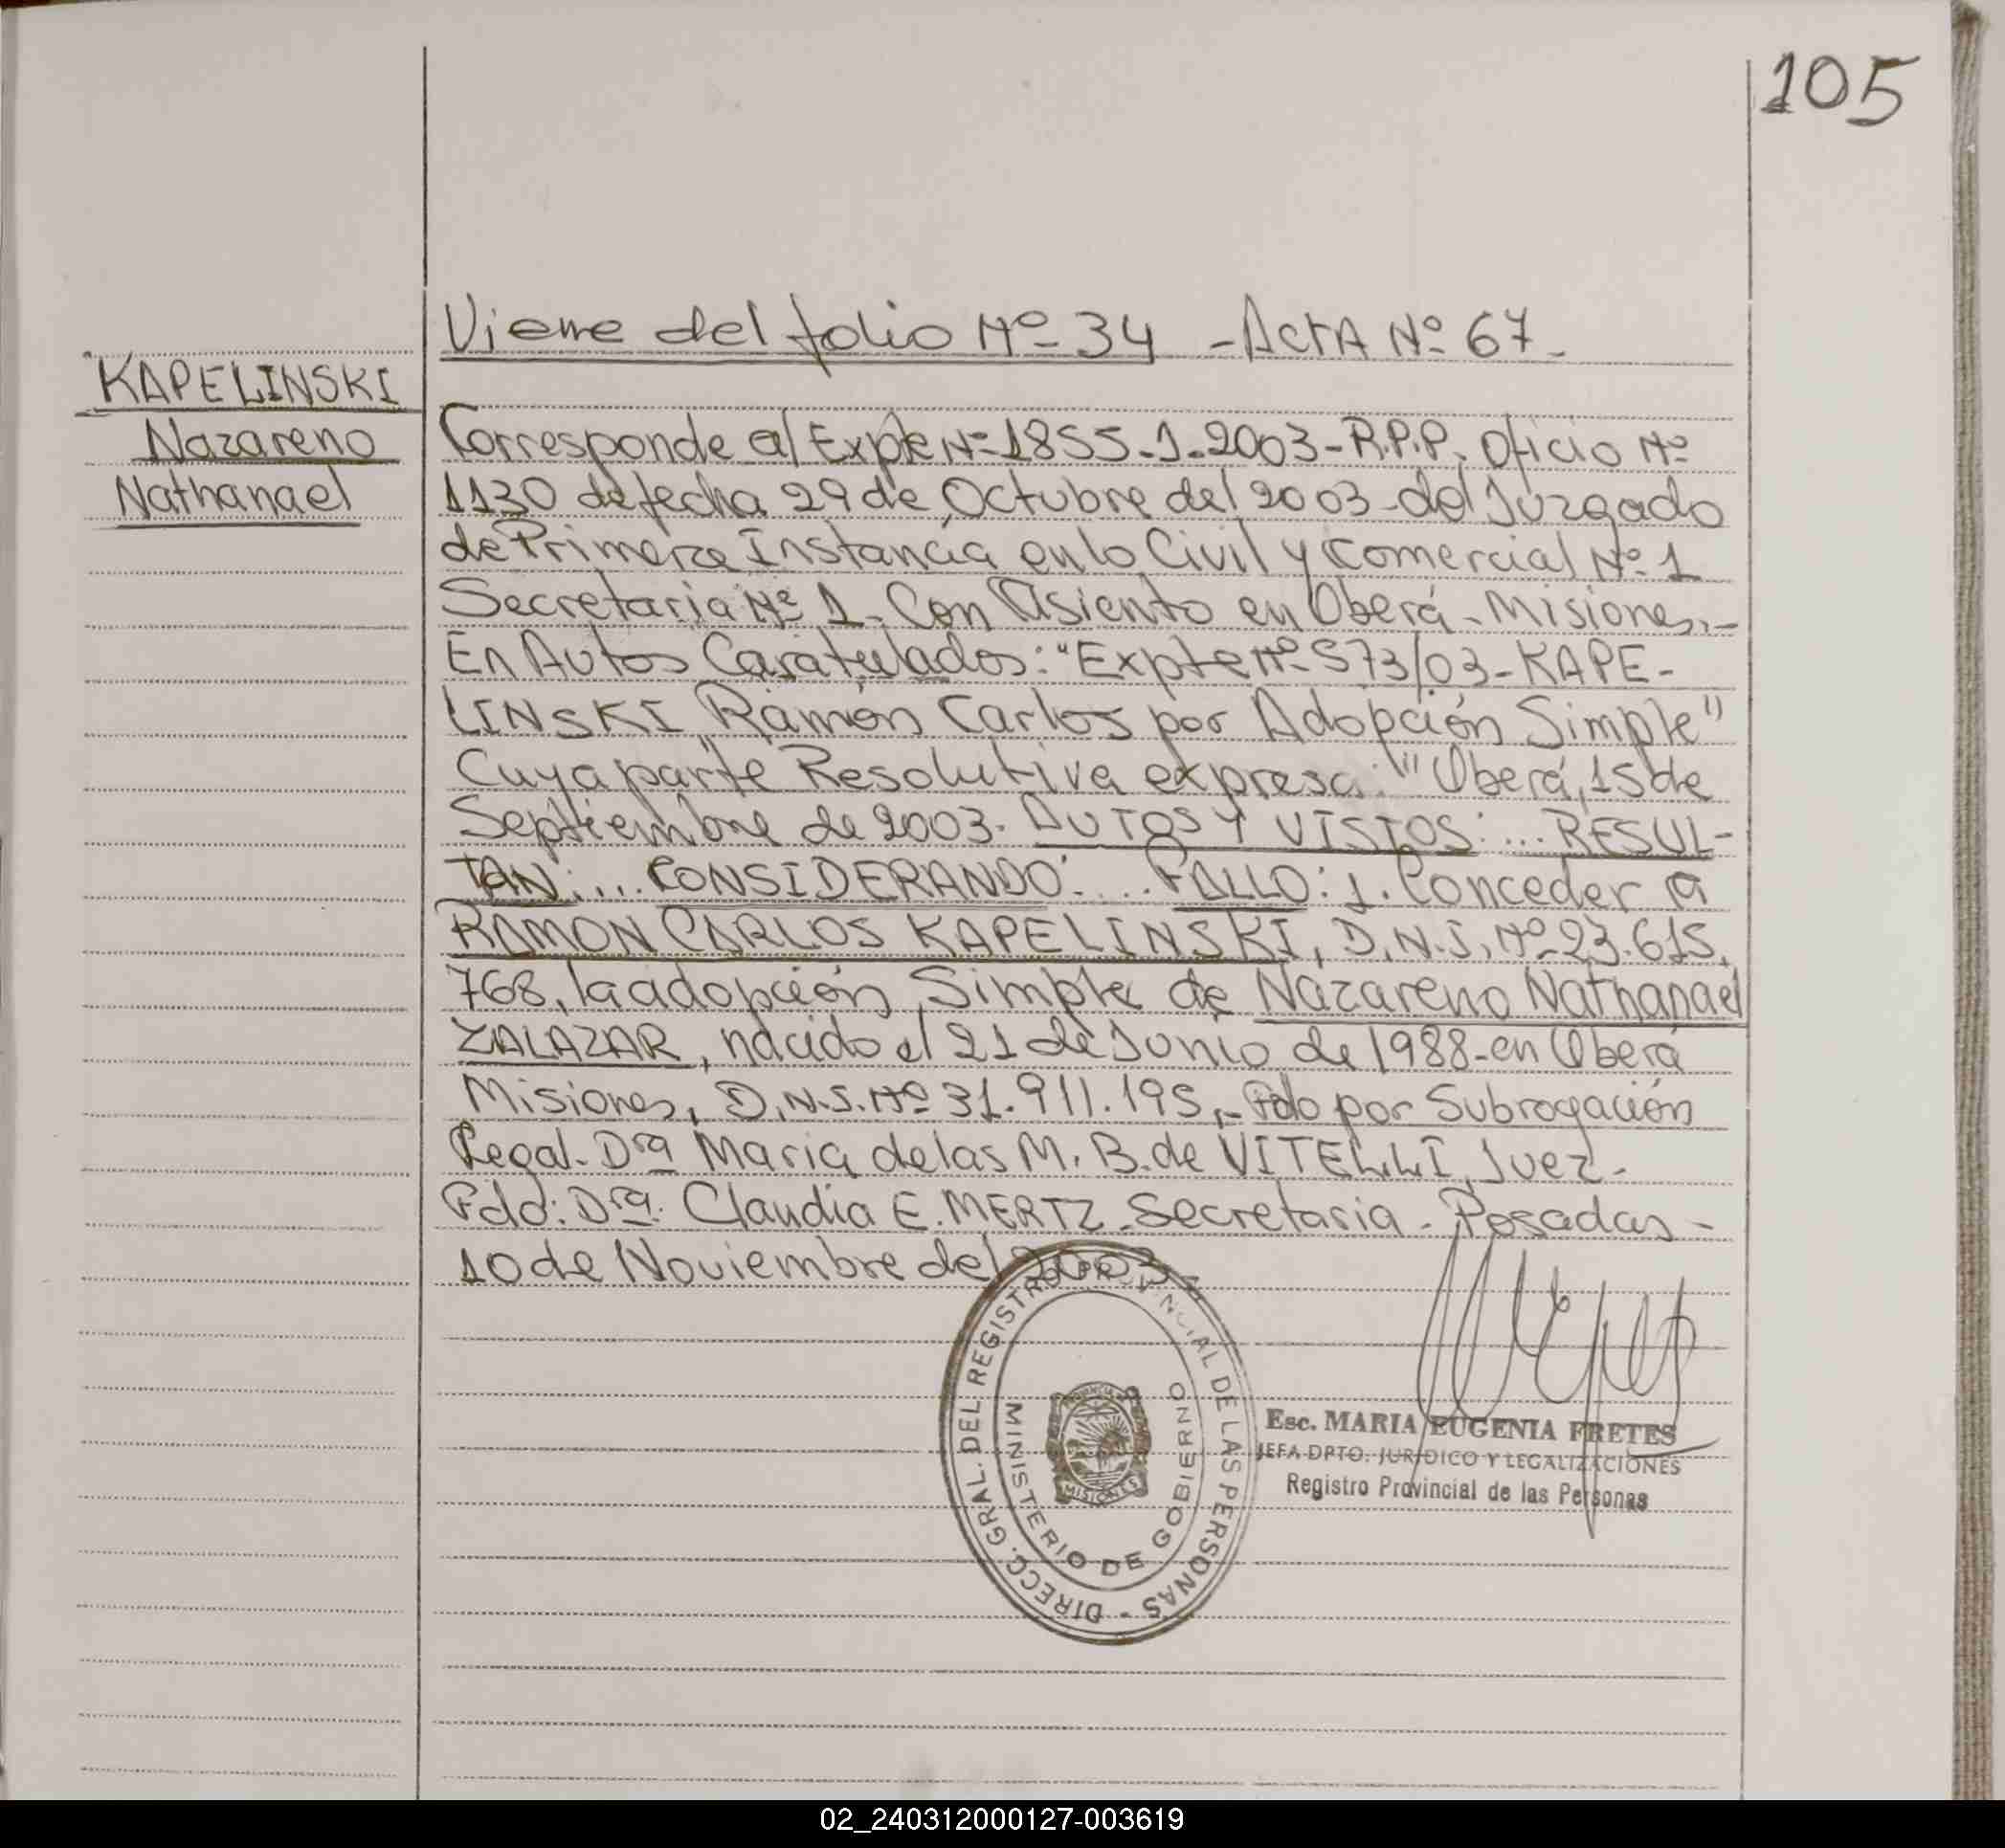 105
Viene del folio Nº 34 - ActA Nº 67-
KAPELINSKI
Nazareno
Nathanael
Corresponde al Expte Nº 1855-1-2003-R.P.P. Oficio Nº
1130 de fecha 29 de Octubre del 2003-del Juzgado
de Primera Instancia en lo Civil y Comercial Nº 1
Secretaria Nº 1- Con Asiento en Oberá - Misiones.-
En Autos Caratulados: "Expte Nº 573/03-KAPE-
LINSKI Ramón Carlos por Adopción Simple"
Cuya parte Resolutiva expresa: "Oberá, 15 de
Septiembre de 2003. AUTOS Y VISTOS: ... RESUL-
TAN: ... CONSIDERANDO: ... FALLO: 1. Conceder a
RAMON CARLOS KAPELINSKI, D.N.I. Nº 23.615.
768, la adopción Simple de Nazareno Nathanael
ZALAZAR, nacido el 21 de Junio de 1988-en Oberá
Misiones, D.N.I. Nº 31.911.195,- Fdo por Subrogación
Legal- Dra Maria de las M. B. de VITELLI, Juez-
Fdo: Dra. Claudia E. MERTZ-Secretaria - Posadas -
10 de Noviembre del 2003-
DIRECC. GRAL. DEL REGISTRO PROVINCIAL DE LAS PERSONAS -
MINISTERIO DE GOBIERNO
PROVINCIA
MISIONES
Esc. MARIA EUGENIA FRETES
JEFA DPTO. JURIDICO Y LEGALIZACIONES
Registro Provincial de las Personas
02_240312000127-003619